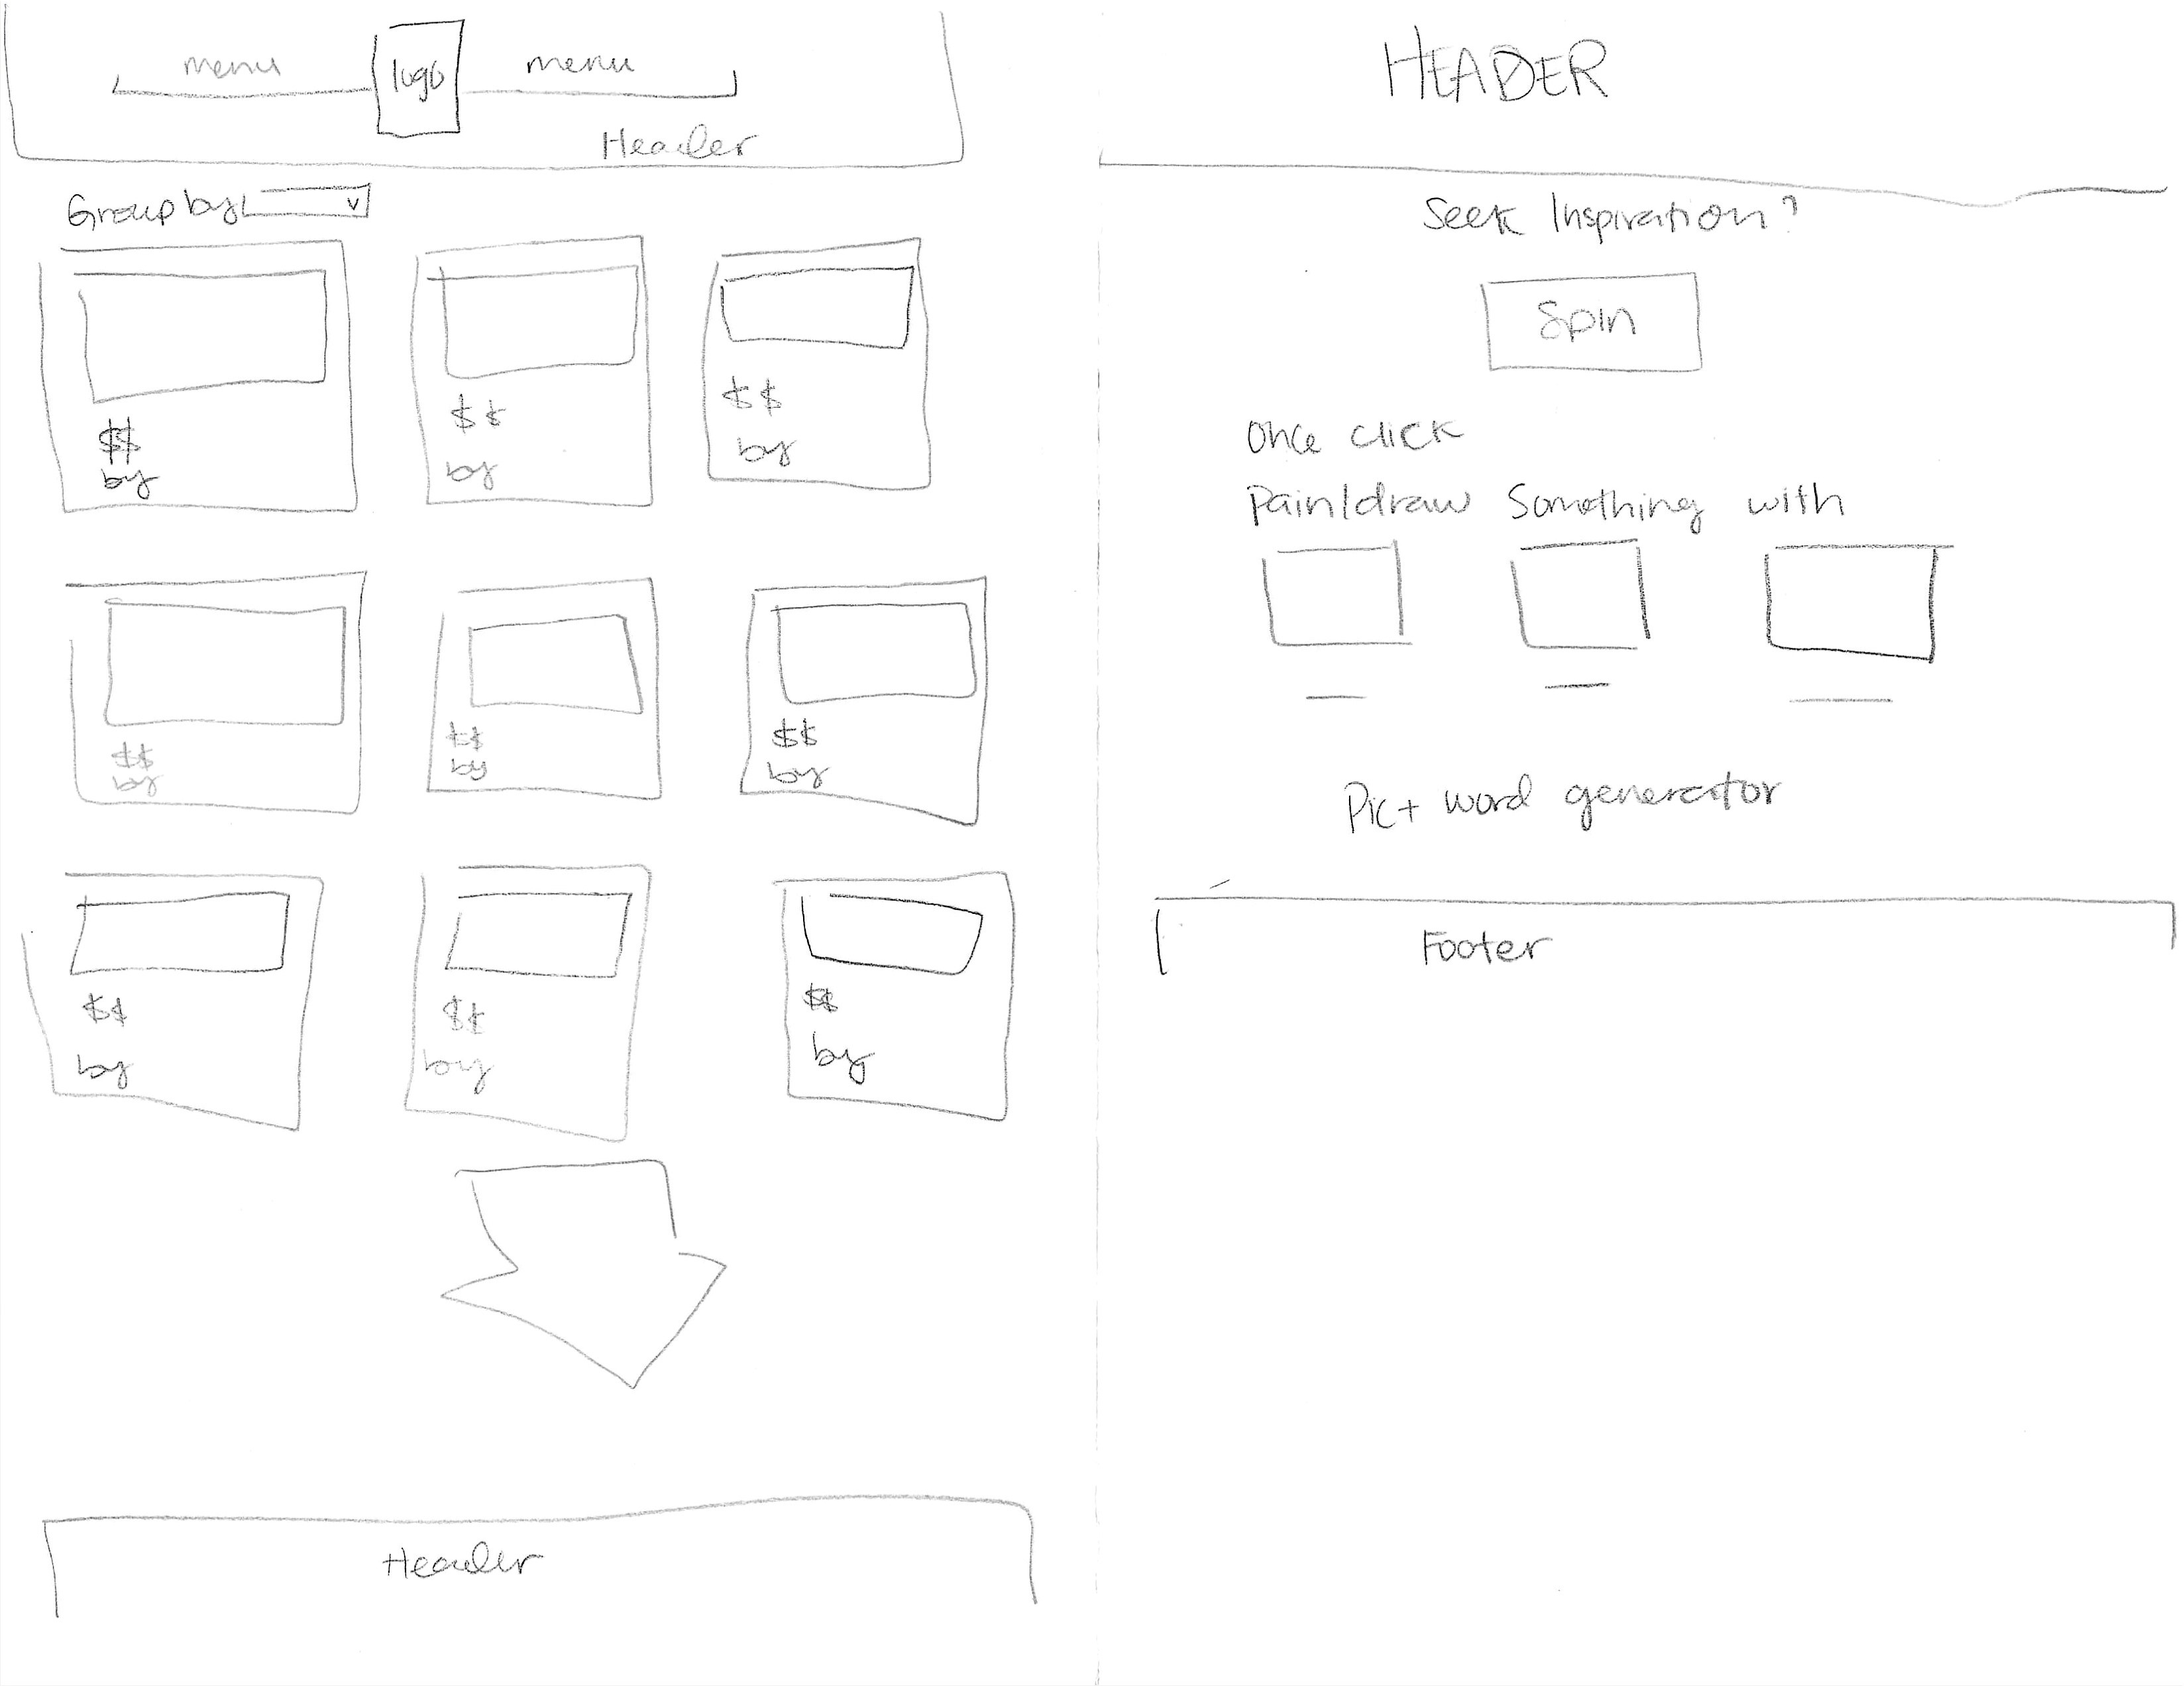 menu logo menu
Header
Group by v
$$ $$ $$
by by by
$$ $$ $$
by by by
$$ $$ $$
by by by
Header
HEADER
Seek Inspiration?
Spin
Once click
Pain/draw Something with
Pic + word generator
Footer